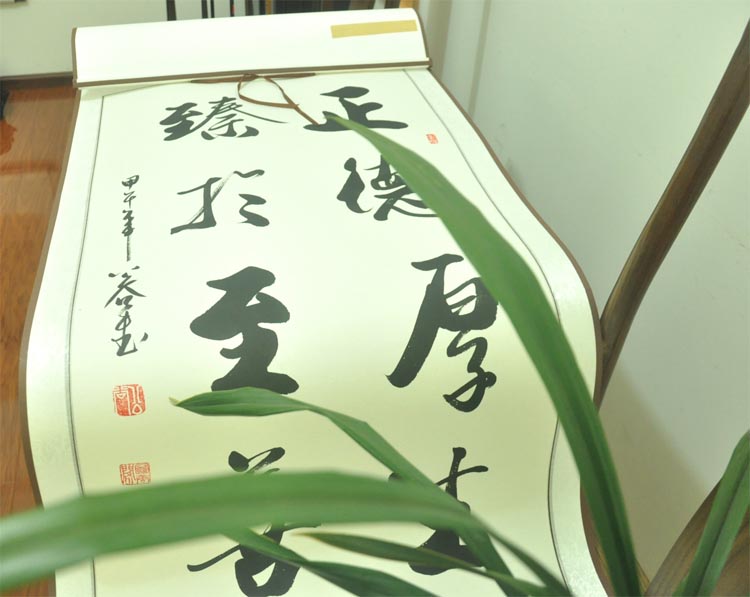 正德厚生
臻於至善
甲午年